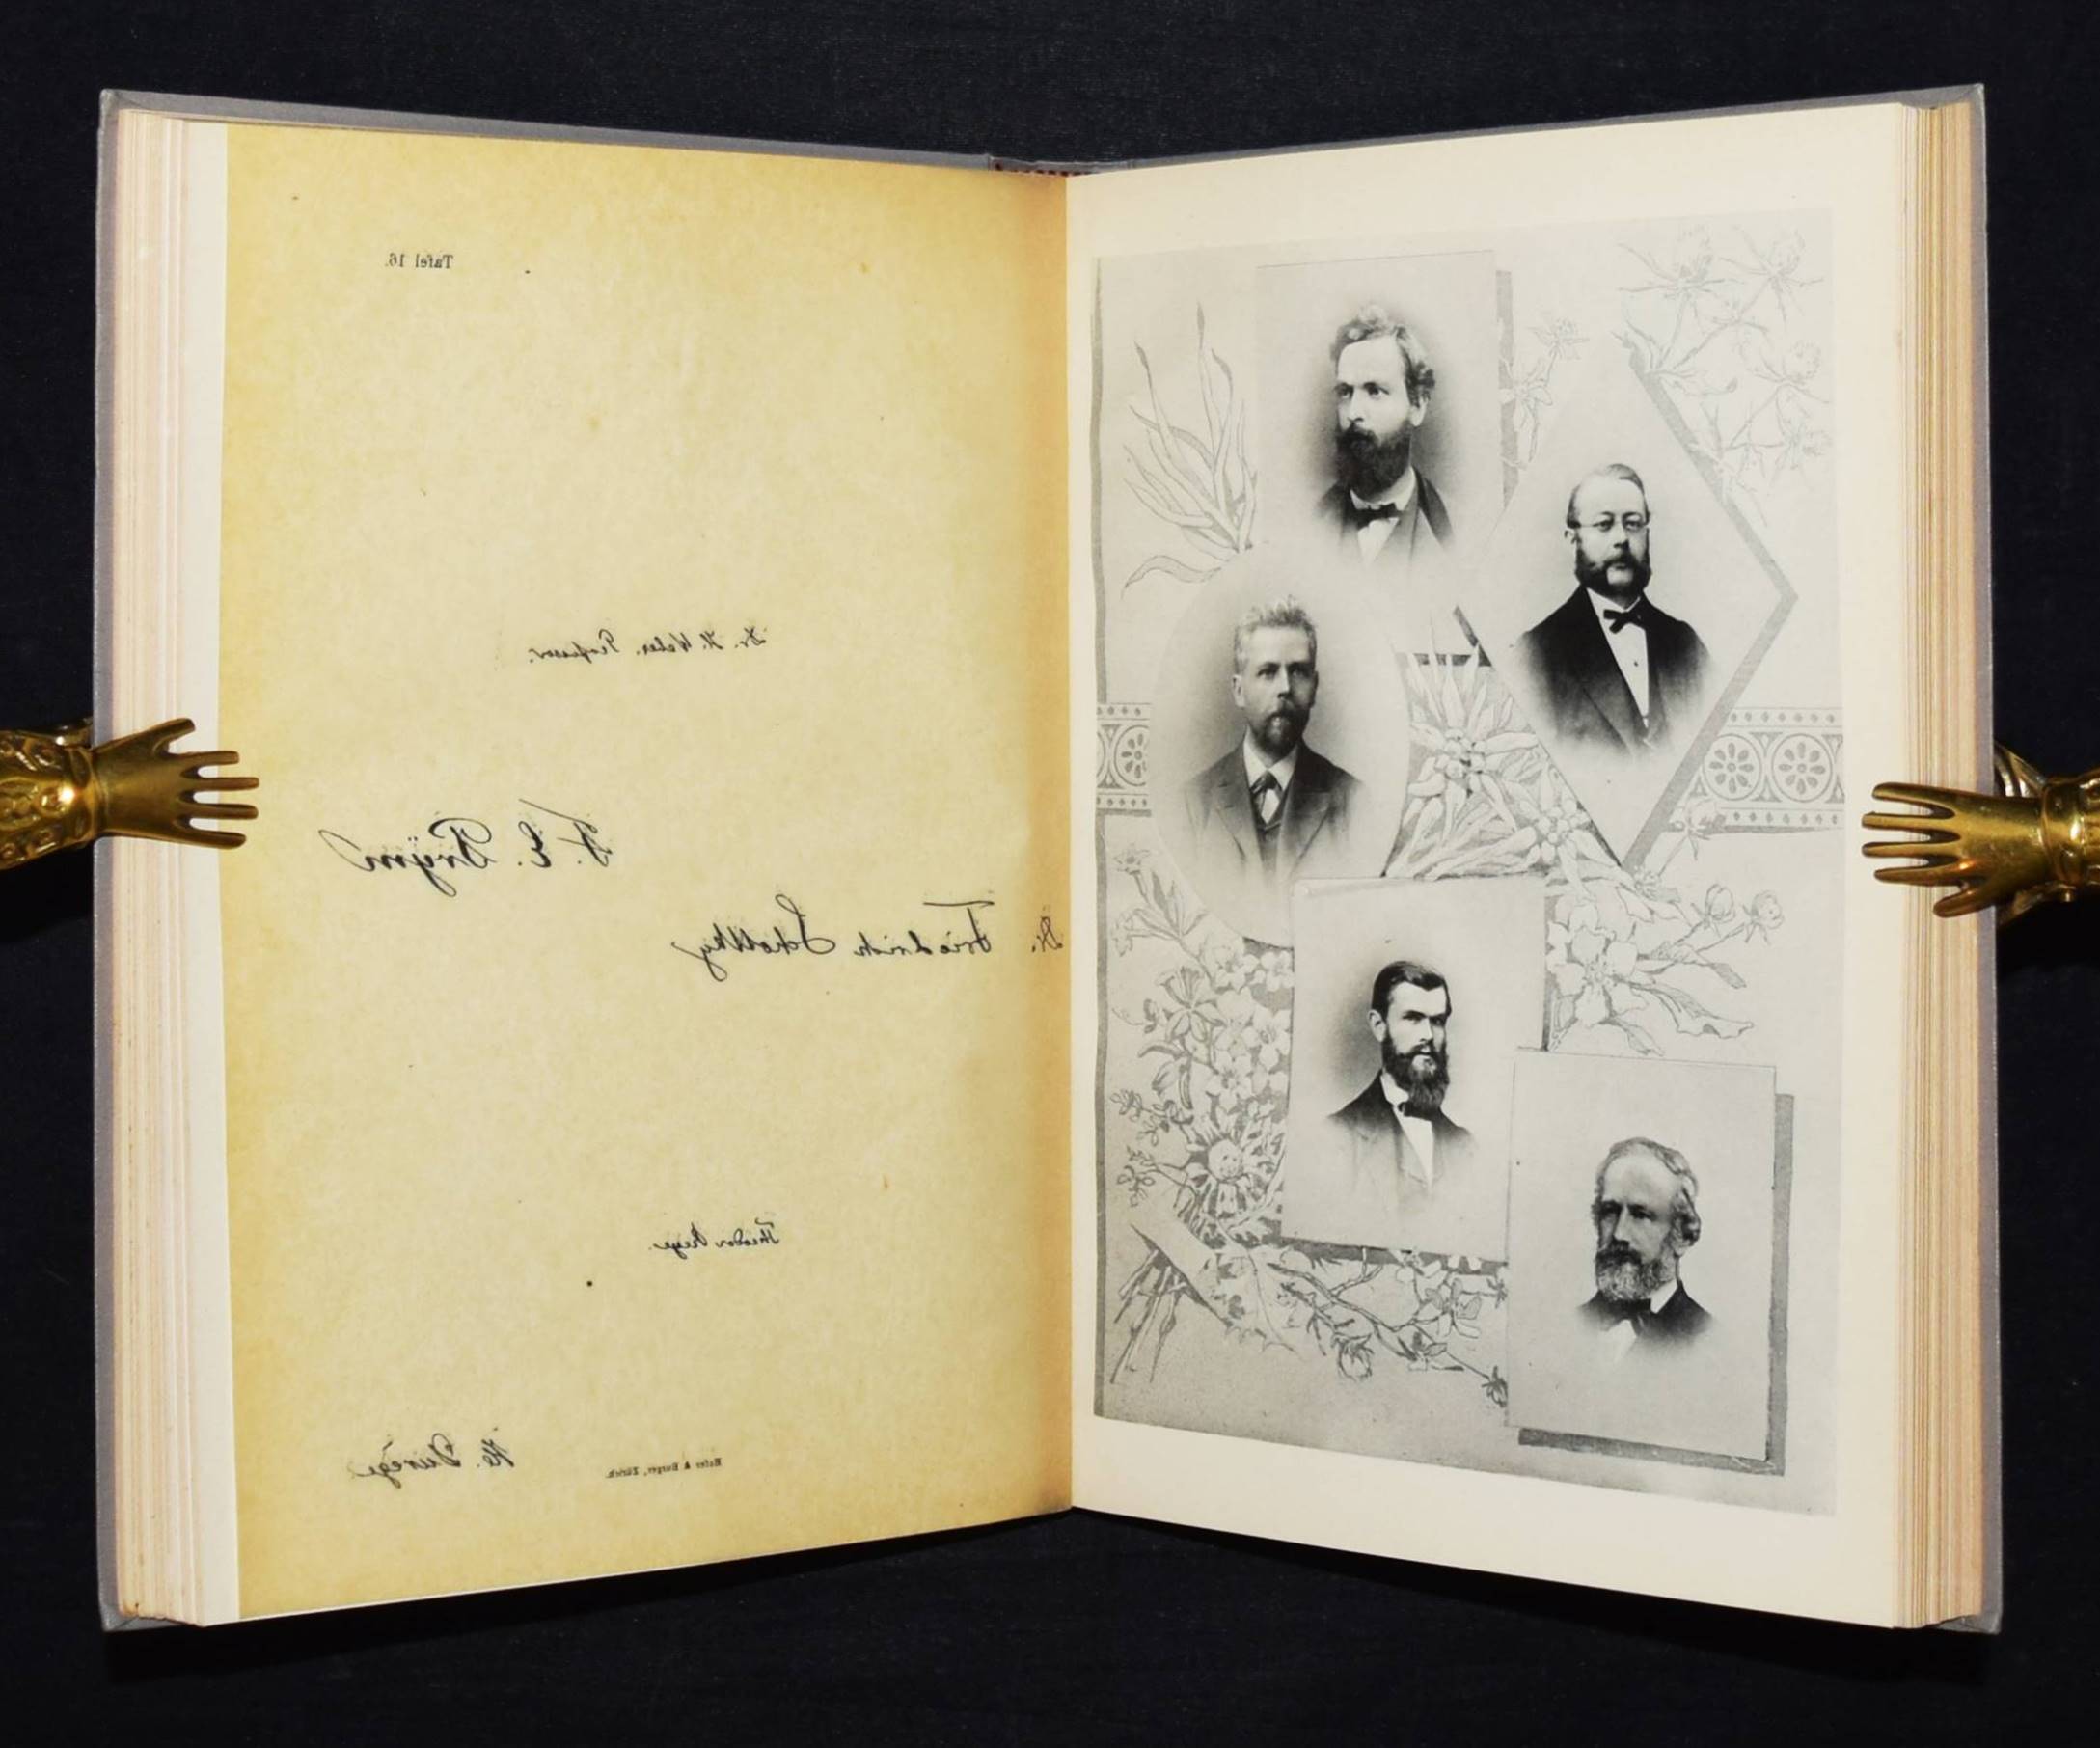 Tafel 16.
Dr. H. Weber. Professor.
F. E. Prym
Dr. Friedrich Schottky
Theodor Reye.
H. Durège
Hofer & Burger, Zürich.